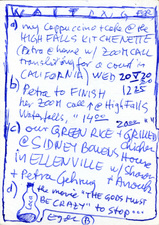 WAITING FOR
a) my Cappuccino + Cake @ the
HIGH FALLS KITCHENETTE
(Petra @ home w/ ZOOM CALL
translating for a court in
CALIFORNIA) WED 20 V 20
12 25
b) Petra to FINISH
her Zoom CALL @ High Falls
Waterfalls, "14 00
2000 "
c) our GREEN RICE + GRILLED
Chicken
@ SIDNEY BOWENS House
in ELLENVILLE w/ Sharon
+ Petra Gehring + Anouck
d) the movie "THE GODS MUST
BE CRAZY" to STOP...
(B)